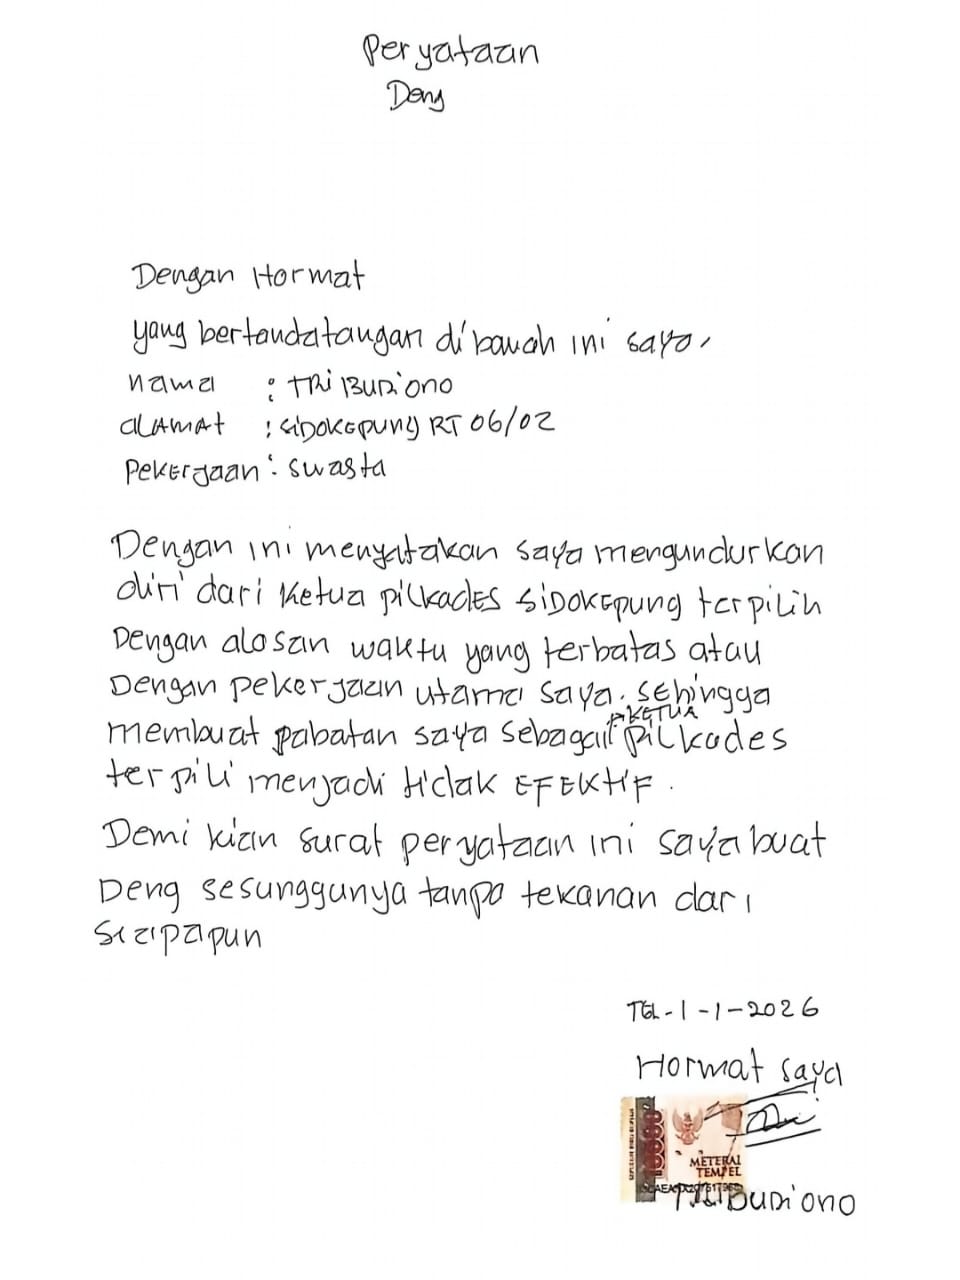 Peryataan
Deng
Dengan Hormat
yang bertandatangan di bawah ini saya,
nama : TRi BUDiONO
ALAMAT : SiDOKEPUNG RT 06/02
Pekerjaan : swasta
Dengan ini menyatakan saya mengundurkan
diri dari Ketua pilkades SiDOKEPUNG terpilih
Dengan alasan waktu yang terbatas atau
Dengan pekerjaan utama saya. sehingga
KETUA
membuat pabatan saya sebagai pilkades
terpili menjadi tidak EFEKTIF.
Demi kian surat peryataan ini saya buat
Deng sesunggunya tanpa tekanan dari
siapapun
TGL-1-1-2026
Hormat saya
10000
METERAI
TEMPEL
TRi BUDiONO